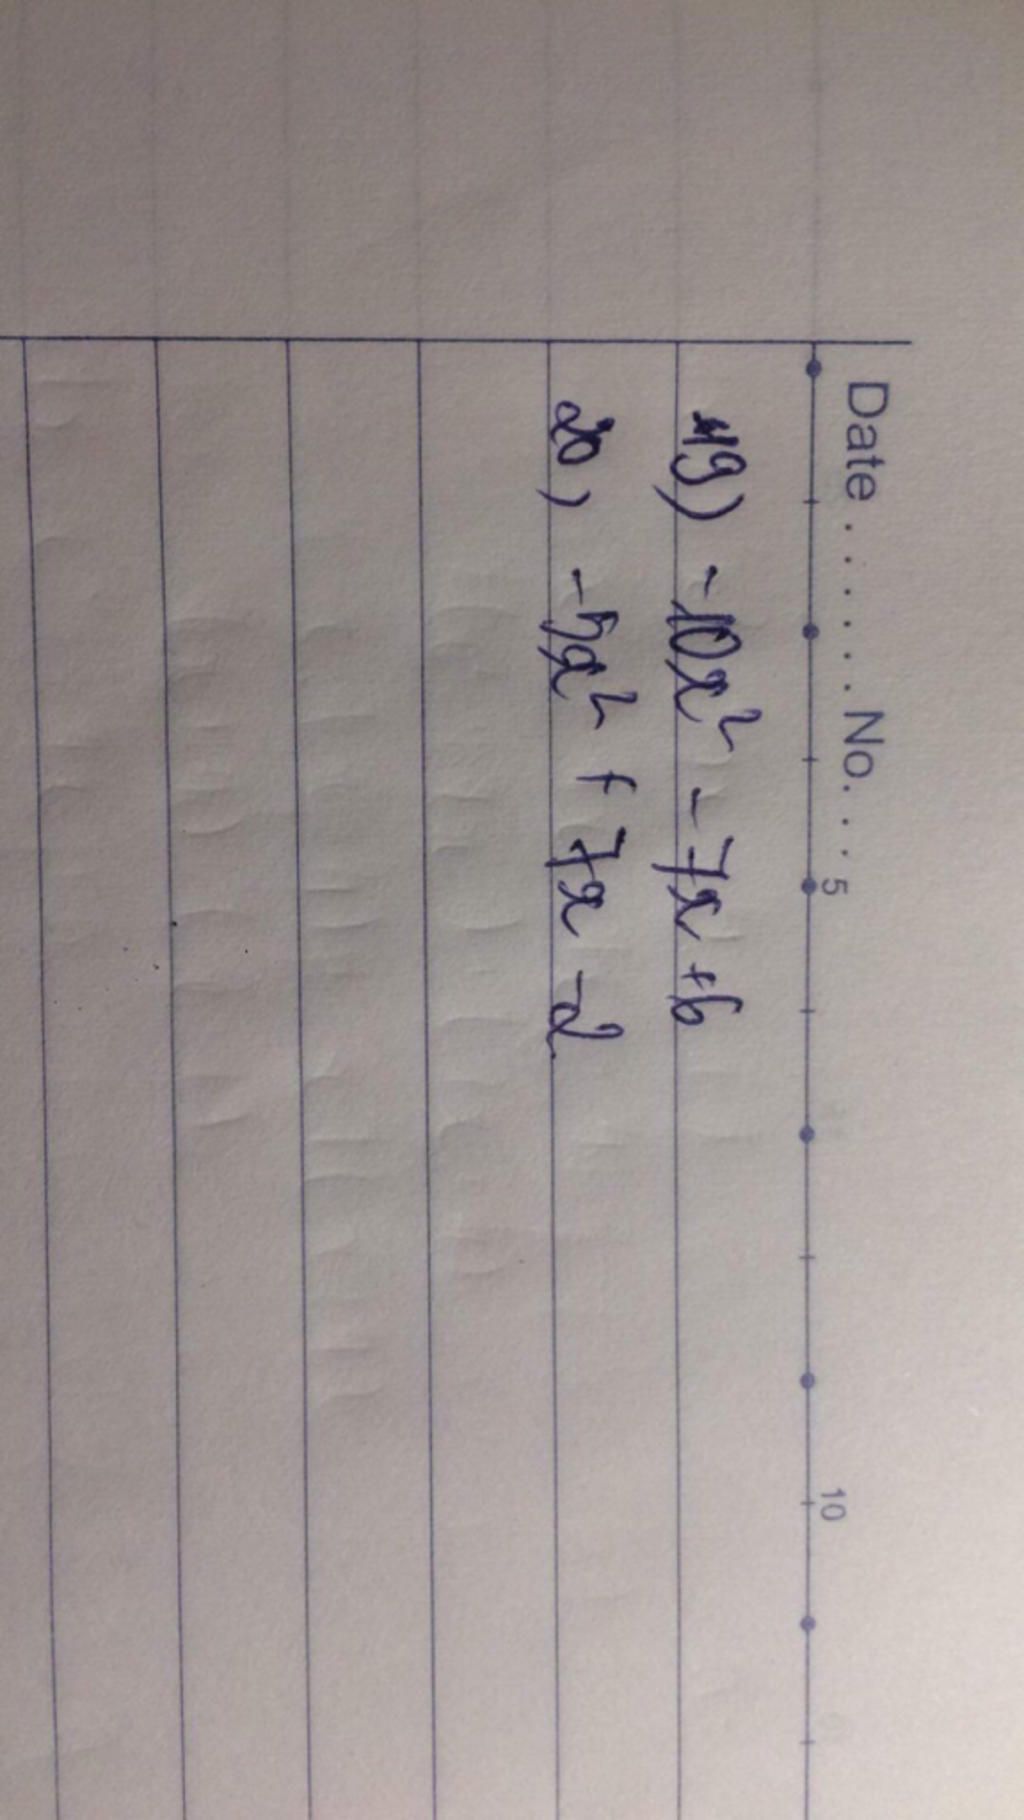 Date . . . . . . No. . . .
5 10
19) -10x² - 7x + 6
20) -5x² + 7x - 2